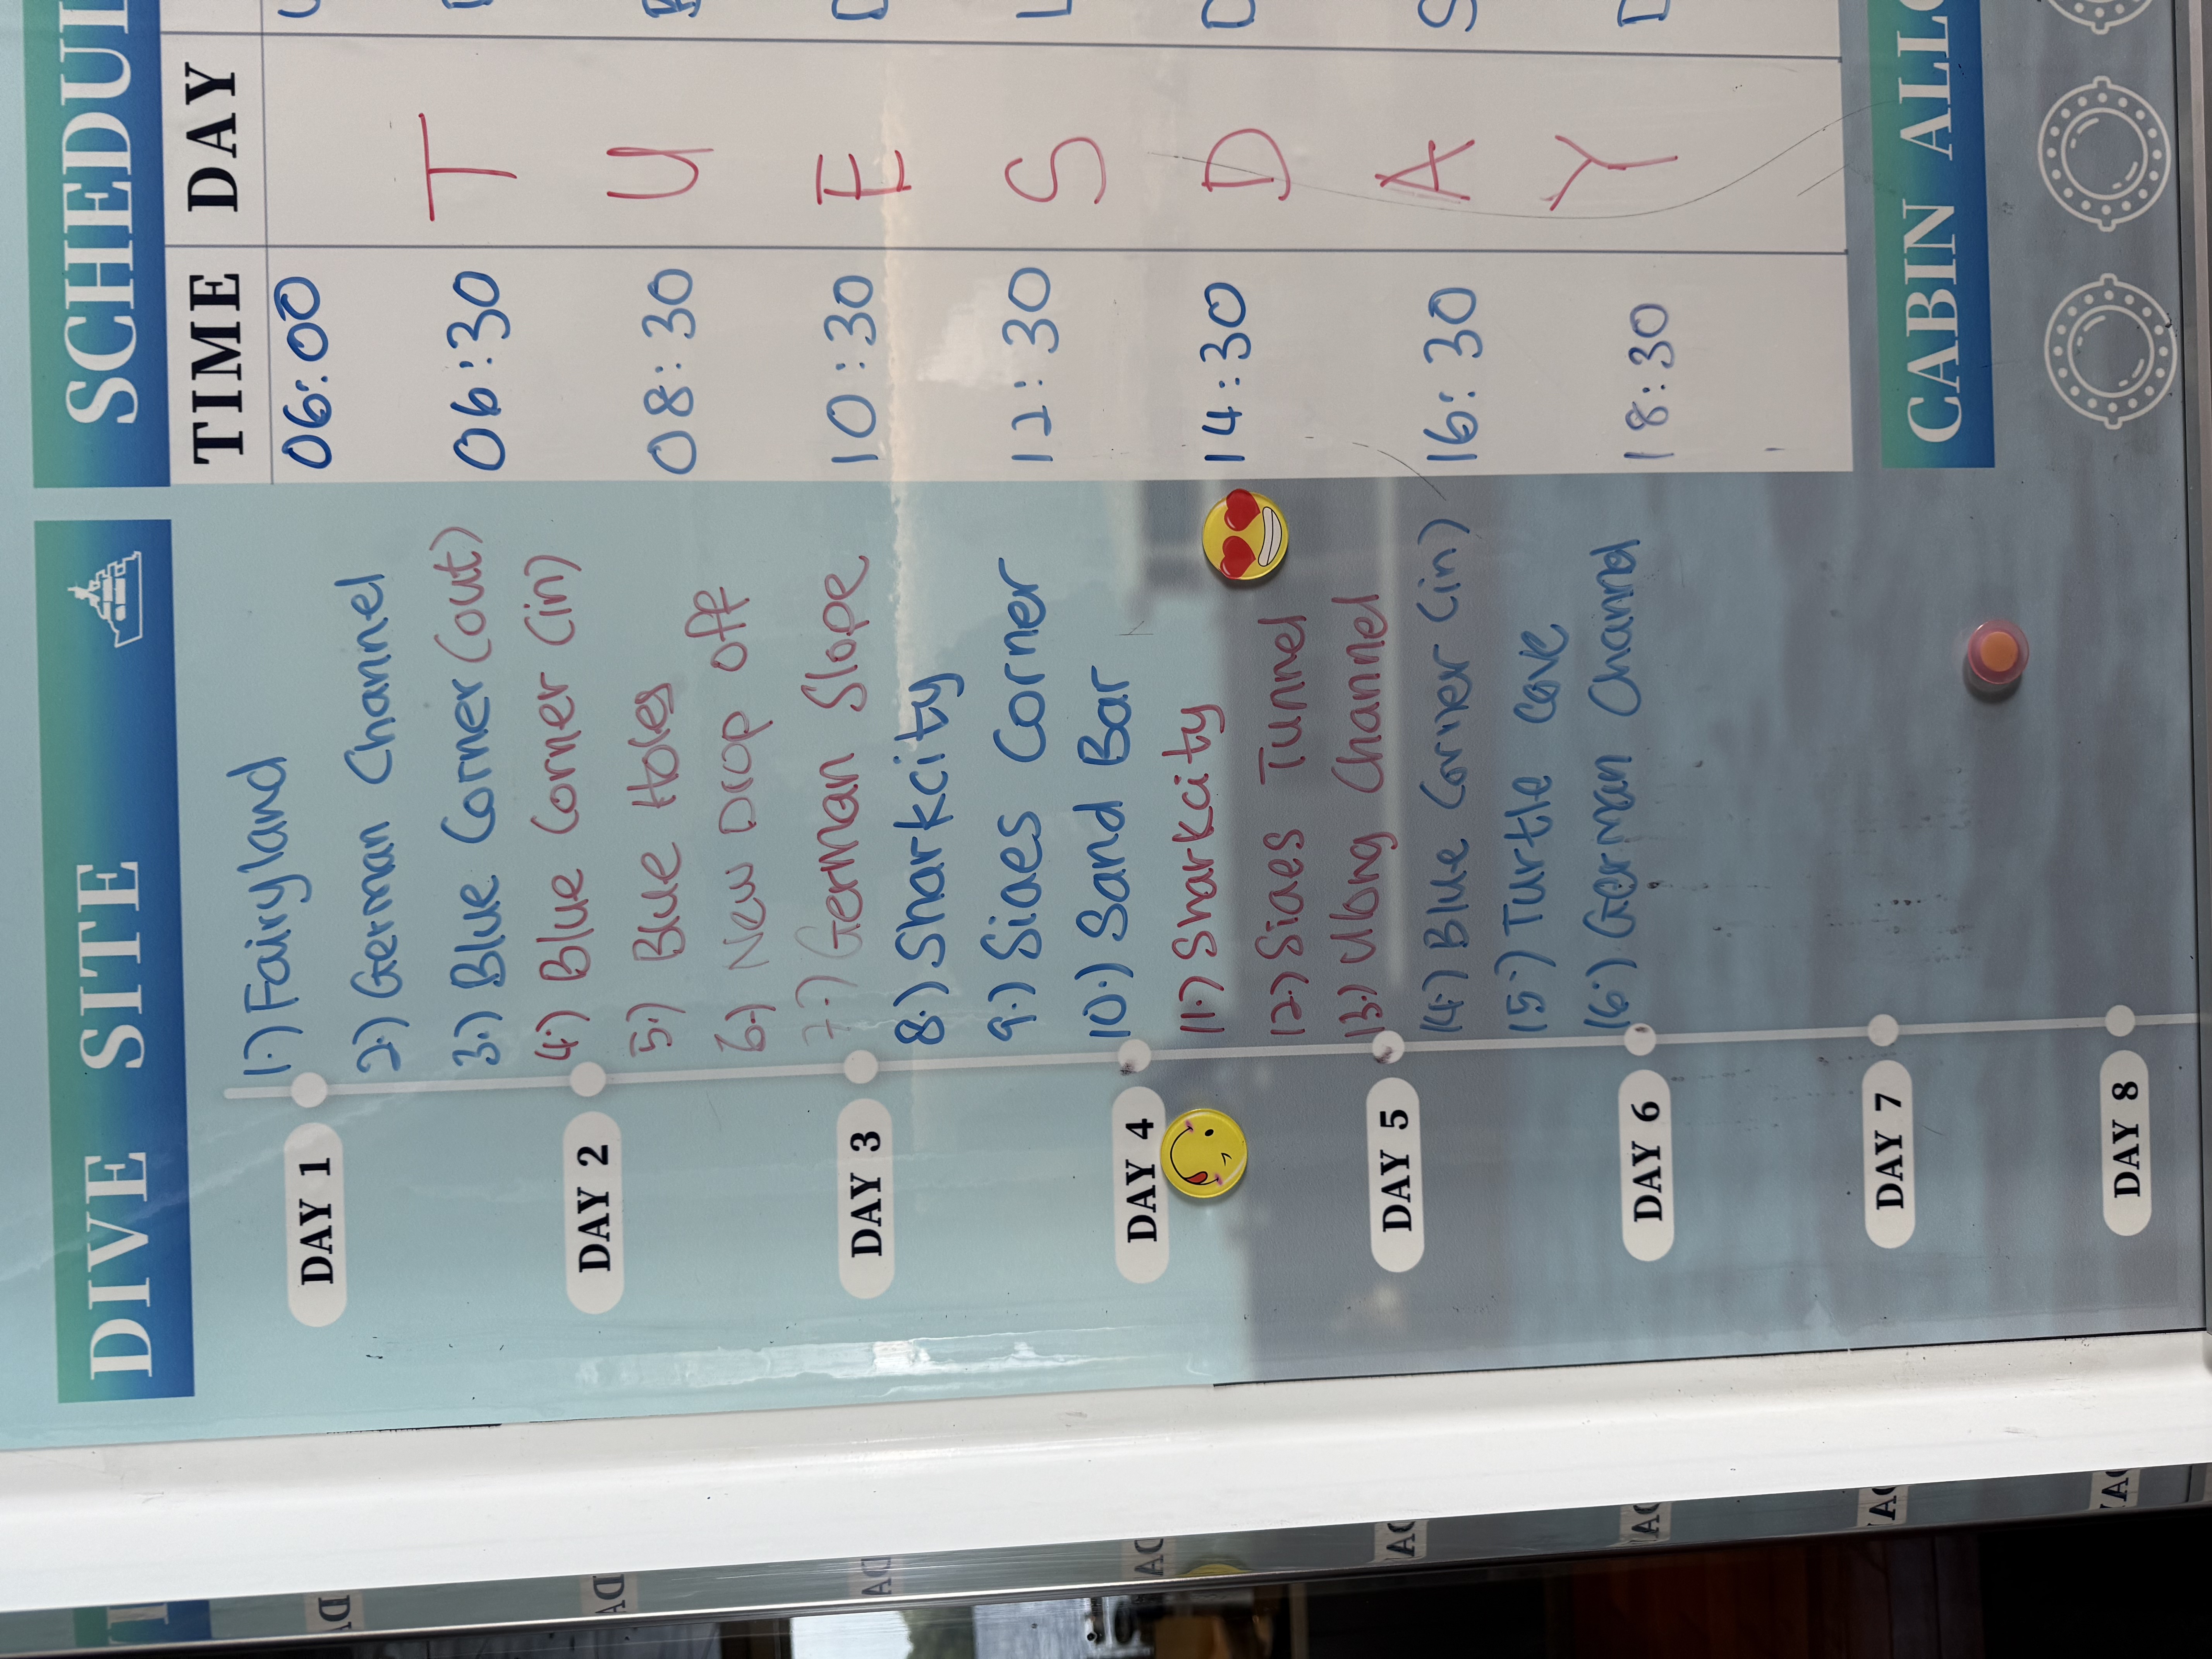 DIVE SITE
DAY 1
DAY 2
DAY 3
DAY 4
DAY 5
DAY 6
DAY 7
DAY 8
1.) Fairyland
2.) German Channel
3.) Blue Corner (out)
4.) Blue Corner (in)
5.) Blue Holes
6.) New Drop off
7.) German Slope
8.) Sharkcity
9.) Siaes Corner
10.) Sand Bar
11.) Sharkcity
12.) Siaes Tunnel
13.) Ulong Channel
14.) Blue Corner (in)
15.) Turtle Cove
16.) German Channel
SCHEDUL
TIME DAY
06:00
06:30
08:30
10:30
12:30
14:30
16:30
18:30
TUESDAY
CABIN ALLO